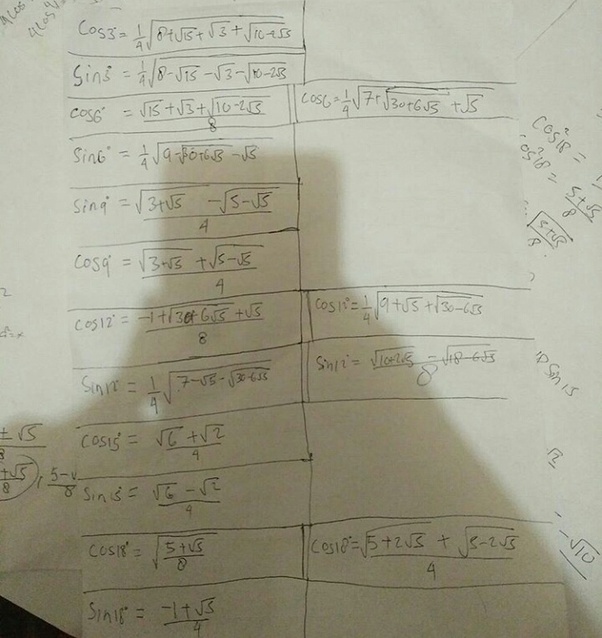 4cos
4cos
cos3° = 1/4 √(8+√15+√3+√(10-2√5))
sin3° = 1/4 √(8-√15-√3-√(10-2√5))
cos6° = (√15+√3+√(10-2√5))/8
cos6 = 1/4 √(7+√(30+6√5)+√5)
sin6° = 1/4 √(9-√(30+6√5)-√5)
sin9° = (√(3+√5) - √(5-√5))/4
cos9° = (√(3+√5) + √(5-√5))/4
cos12° = (-1+√(30+6√5)+√5)/8
cos12° = 1/4 √(9+√5+√(30-6√5))
sin12° = 1/4 √(7-√5-√(30-6√5))
sin12° = (√(10+2√5) - √(18-6√5))/8
cos15° = (√6+√2)/4
sin15° = (√6-√2)/4
cos18° = √((5+√5)/8)
cos18° = (√(5+2√5) + √(5-2√5))/4
sin18° = (-1+√5)/4
cos²18 =
cos²18 = (5+√5)/8
√(5+√5)/8
sin 15
√2
-√10
± √5
/8
+√5
/8
, 5-√
/8
2